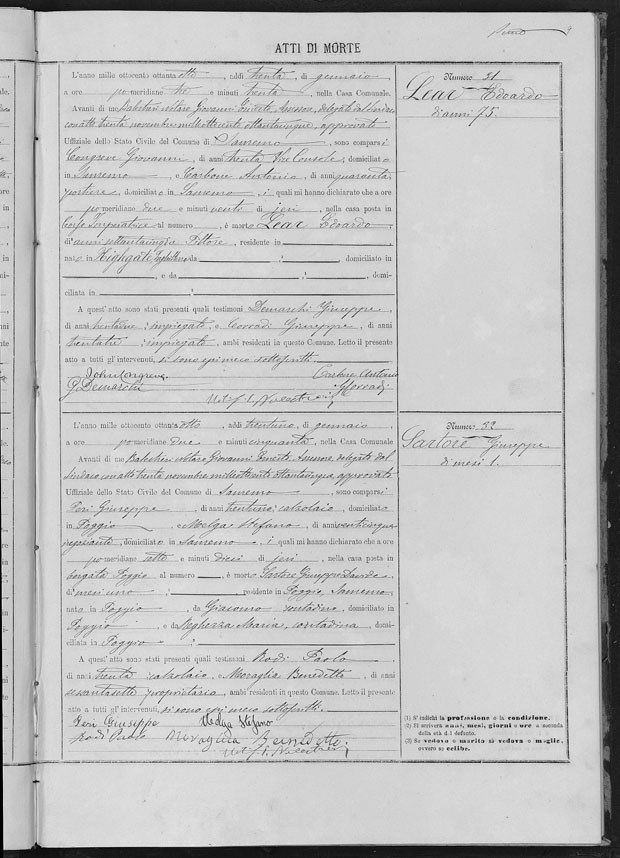 ATTI DI MORTE
L'anno mille ottocento ottantaotto, addi trenta, di gennaio,
a ore pomeridiane tre e minuti trenta, nella Casa Comunale.
Avanti di me Notaro Giovanni Assessore, delegato dal Sindaco
con atto trenta novembre milleottocento ottantacinque, approvato
Uffiziale dello Stato Civile del Comune di Sanremo, sono comparsi
Congreve Giovanni, di anni trenta, Vice Console, domiciliato
in Sanremo e Carbone Antonio, di anni quaranta
portiere, domiciliato in Sanremo, i quali mi hanno dichiarato che a ore
pomeridiane due e minuti venti di jeri, nella casa posta in
Corso Imperatrice al numero , è morto Lear Edoardo
di anni settantacinque Pittore, residente in
nato in Highgate da domiciliato in
, e da , domi-
ciliata in
A quest'atto sono stati presenti quali testimoni Demarchi Giuseppe,
di anni impiegato, e Corradi Giuseppe, di anni
trentatre, impiegato, ambi residenti in questo Comune. Letto il presente
atto a tutti gl'intervenuti, si sono essi meco sottoscritti.
John Congreve Carbone Antonio
G. Demarchi Corradi
Numero 31
Lear Edoardo
di anni 75.
L'anno mille ottocento ottantaotto, addi trentuno, di gennaio,
a ore pomeridiane due e minuti cinquanta, nella Casa Comunale
Avanti di me Notaro Giovanni Assessore, delegato dal
Sindaco con atto trenta novembre milleottocento ottantacinque approvato
Uffiziale dello Stato Civile del Comune di Sanremo, sono comparsi
Peri Giuseppe, di anni trentuno, calzolaio, domiciliato
in Poggio e Melga Stefano, di anni venticinque
negoziante, domiciliato in Sanremo, i quali mi hanno dichiarato che a ore
pomeridiane sette e minuti dieci di jeri, nella casa posta in
borgata Poggio, al numero , è morto Sartore Giuseppe
di mesi uno , residente in Poggio, Sanremo,
nato in Poggio, da Giacomo contadino, domiciliato in
Poggio e da Maria, contadina, domi-
ciliata in Poggio
A quest'atto sono stati presenti quali testimoni Rodi Paolo,
di anni trenta calzolaio, e Moraglia Benedetto, di anni
sessantasette proprietario, ambi residenti in questo Comune. Letto il presente
atto a tutti gl'intervenuti, si sono essi meco sottoscritti.
Peri Giuseppe Melga Stefano
Rodi Paolo Moraglia Benedetto
Numero 32
Sartore Giuseppe
di mesi 1.
(1) S' indichi la professione o la condizione.
(2) Si scriverà anni, mesi, giorni o ore a seconda
della età del defunto.
(3) Se vedova o marito si vedova o moglie,
ovvero se celibe.